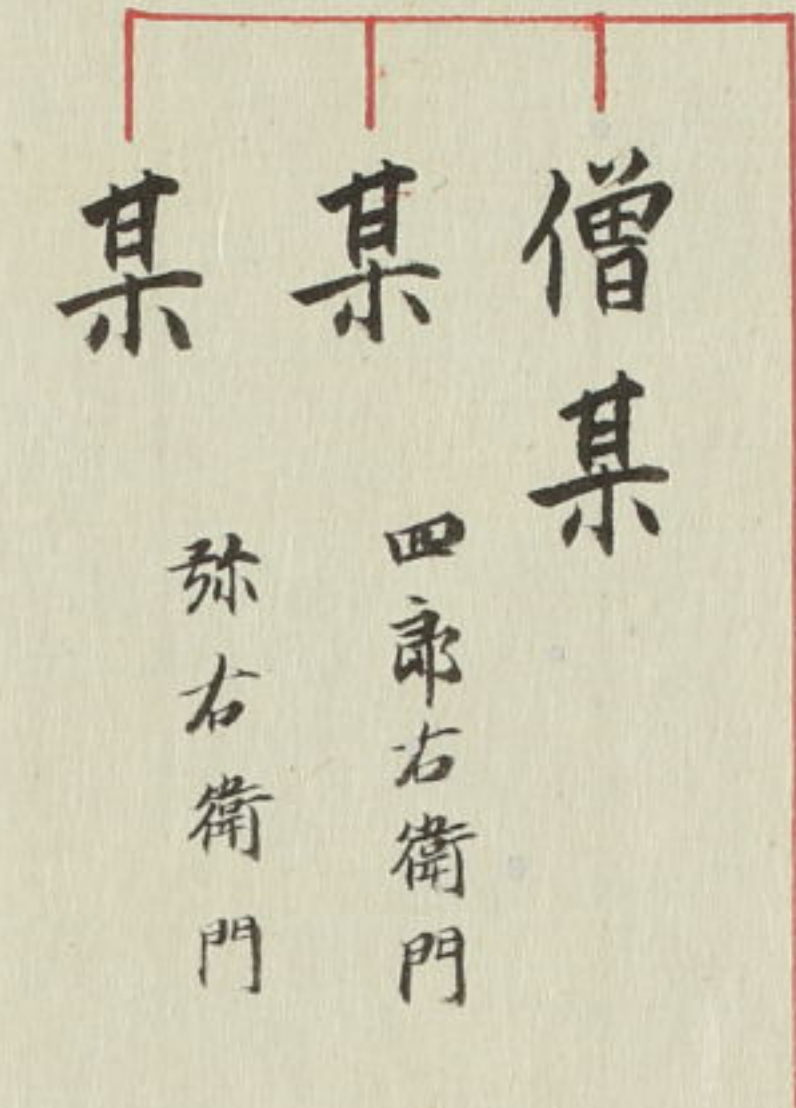 僧某
某
四郎右衛門
某
弥右衛門